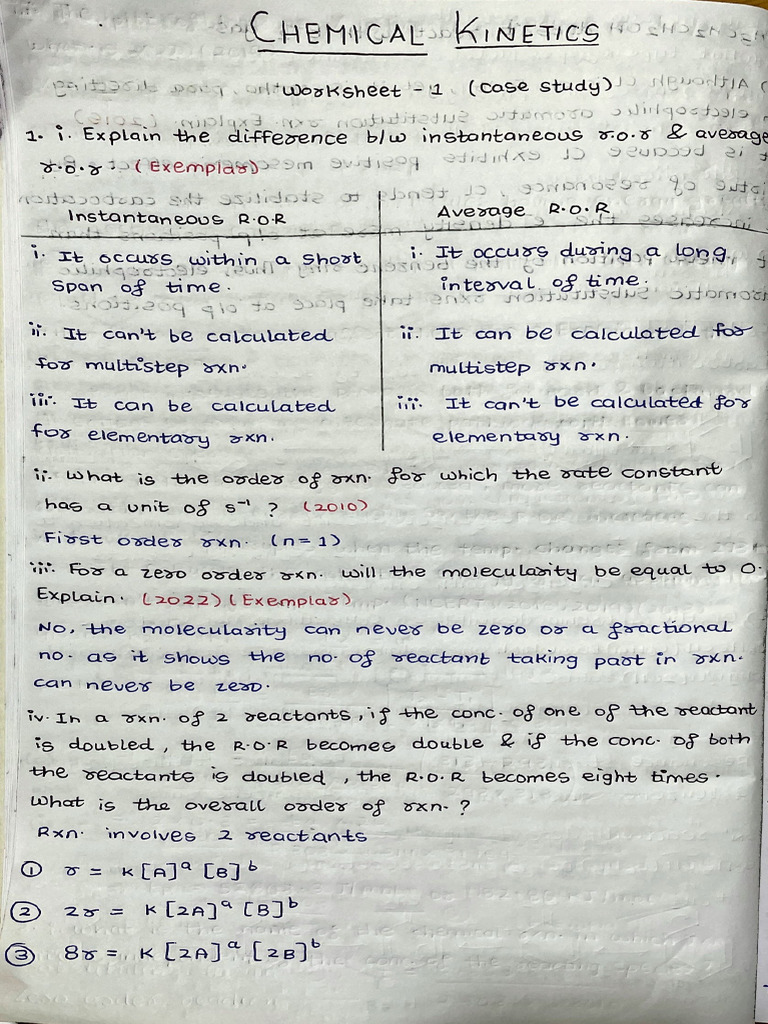 CHEMICAL KINETICS
Worksheet - 1 (case study)
1. i. Explain the difference b/w instantaneous r.o.r & average
r.o.r. (Exemplar)
Instantaneous R.O.R
Average R.O.R
i. It occurs within a short
span of time.
i. It occurs during a long
interval of time.
ii. It can't be calculated
for multistep rxn.
ii. It can be calculated for
multistep rxn.
iii. It can be calculated
for elementary rxn.
iii. It can't be calculated for
elementary rxn.
ii. What is the order of rxn. for which the rate constant
has a unit of s⁻¹ ? (2010)
First order rxn. (n=1)
iii. For a zero order rxn. will the molecularity be equal to 0.
Explain. (2022) (Exemplar)
No, the molecularity can never be zero or a fractional
no. as it shows the no. of reactant taking part in rxn.
can never be zero.
iv. In a rxn. of 2 reactants, if the conc. of one of the reactant
is doubled, the R.O.R becomes double & if the conc. of both
the reactants is doubled, the R.O.R becomes eight times.
What is the overall order of rxn. ?
Rxn. involves 2 reactants
① r = K [A]ᵃ [B]ᵇ
② 2r = K [2A]ᵃ [B]ᵇ
③ 8r = K [2A]ᵃ [2B]ᵇ